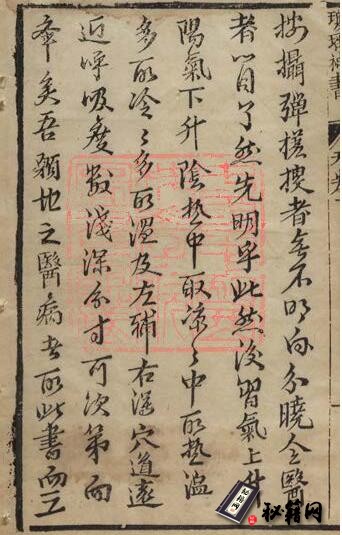 按攝彈搓搜者無不明白分曉令醫
者一目了然先明乎此然後習氣上升
陽氣下升陰熱中取涼々中取熱溫
多取冷々多取溫及左補右瀉穴道遠
近呼吸度數淺深分寸可次第而
奉矣吾願世之醫病者取此書而工
瓊瑤神書
秘籍网
秘籍网